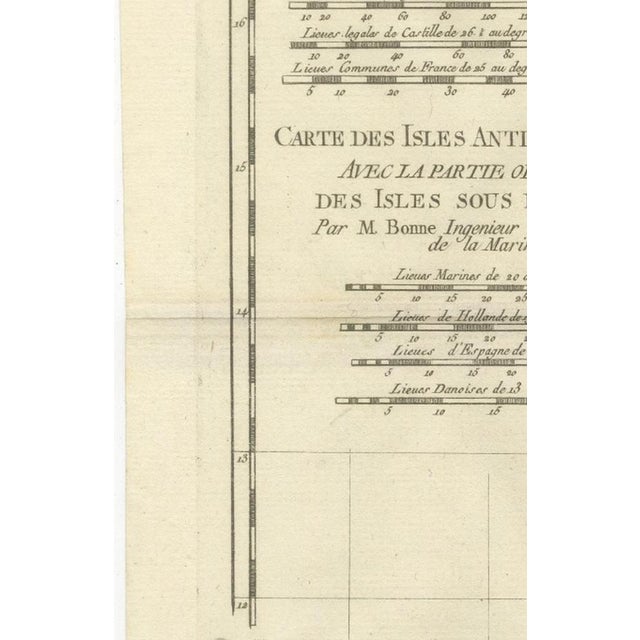 16
10 20 40 60 80 100
Lieues legales de Castille de 26 ½ au degr
10 20 40 60 80
Lieues Communes de France de 25 au deg
5 10 20 30 40
CARTE DES ISLES ANTI
15
AVEC LA PARTIE O
DES ISLES SOUS
Par M. Bonne Ingenieur
de la Mari
Lieues Marines de 20
5 10 15 20 25
14
Lieues de Hollande de
5 10 15 20
Lieues d'Espagne de
5 10 15 20
Lieues Danoises de 13
5 10 15
13
12